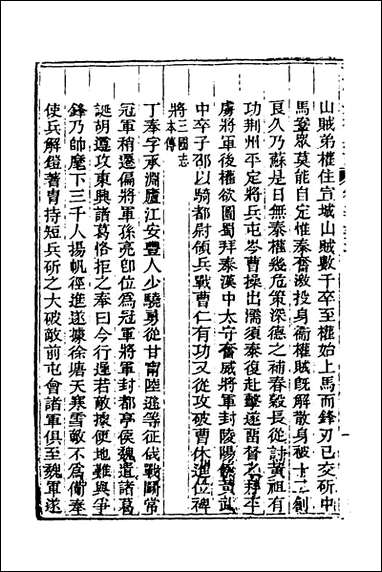 山賊弟權住宣城山賊數千卒至權始上馬而鋒刃已交斫中
馬鞍衆莫能自定惟泰奮激投身衛權賊旣解散身被十二創
良久乃蘇是日無泰權幾危策深德之補春穀長從討黃祖有
功荆州平定將兵屯岑曹操出濡須泰復赴擊遂留督之拜平
虜將軍後權欲圖蜀拜泰漢中太守奮威將軍封陵陽侯黃武
中卒子邵以騎都尉領兵戰曹仁有功又從攻破曹休進位裨
將三國志本傳
丁奉字承淵廬江安豐人少驍勇從甘甯陸遜等征伐戰鬭常
冠軍稍遷偏將軍孫亮卽位為冠軍將軍封都亭侯魏遣諸葛
誕胡遵攻東興諸葛恪拒之奉曰今行遲若敵據便地難與爭
鋒乃帥麾下三千人揚帆徑進遂據徐塘天寒雪敵不為備奉
使兵解鎧著胄持短兵斫之大破敵前屯會諸軍俱至魏軍遂